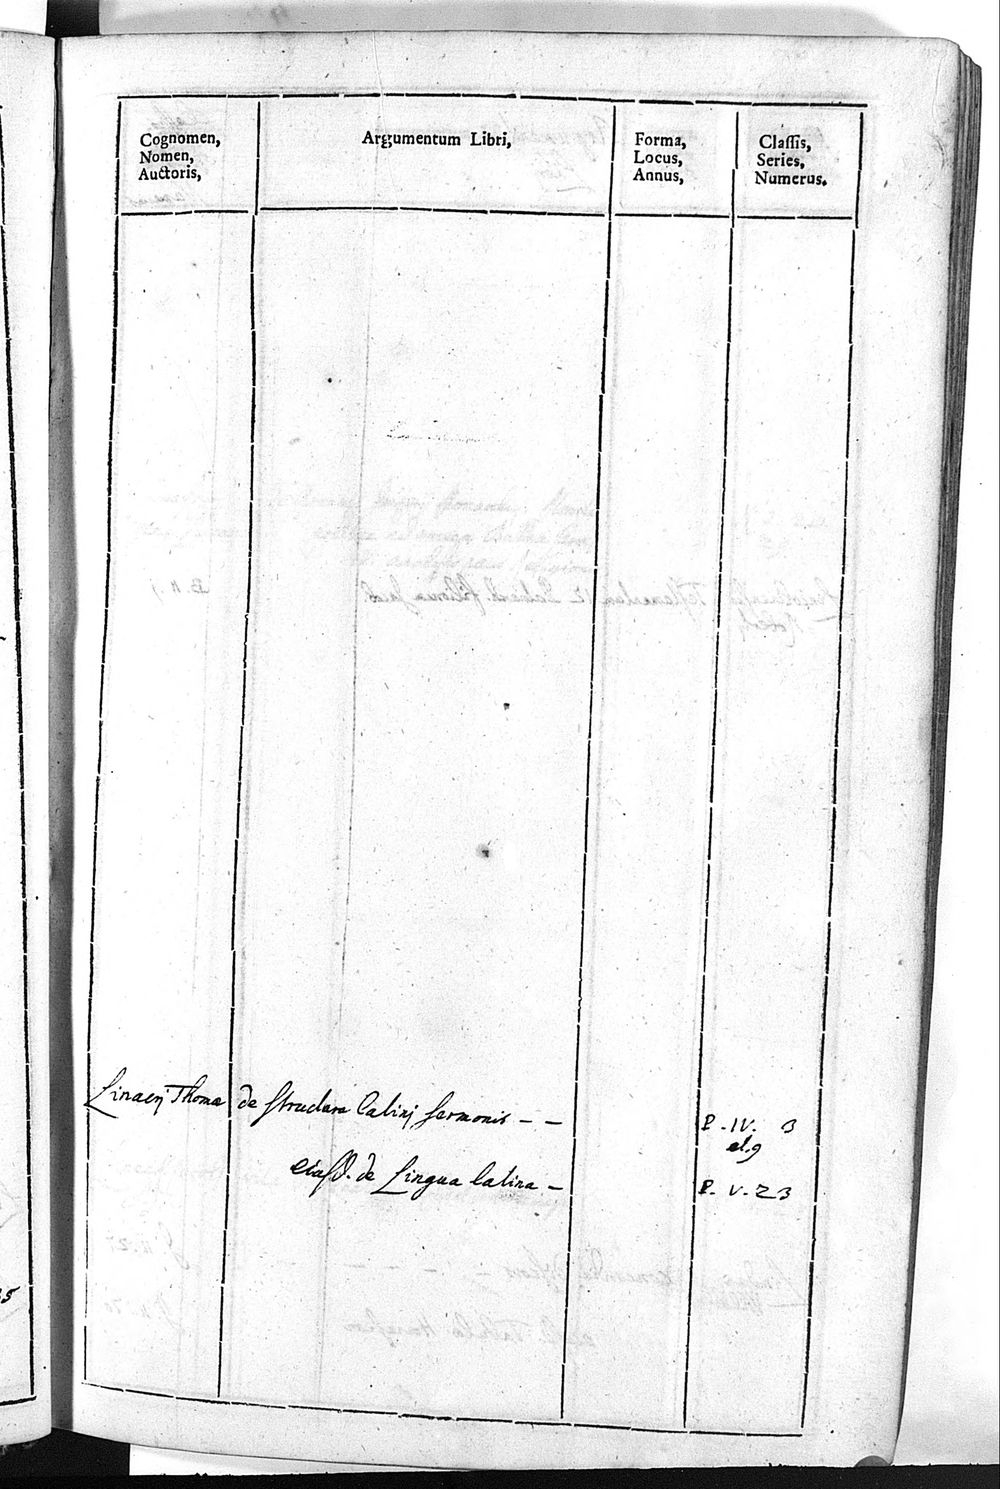 Cognomen,
Nomen,
Auctoris,
Argumentum Libri,
Forma,
Locus,
Annus,
Classis,
Series,
Numerus.
Linacrj Thoma de structura latinj sermonis - - P. IV. 3
et. 9
eiusd. de Lingua latina - P. V. 23